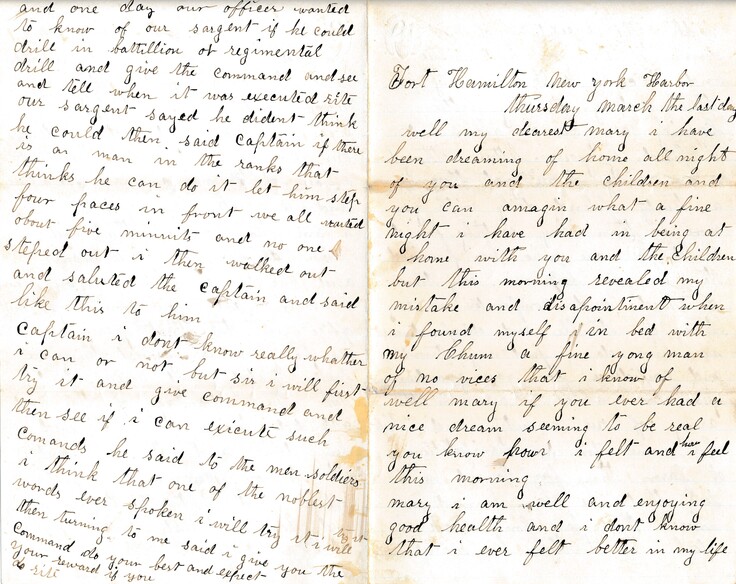 Fort Hamilton New york Harbor
thursday march the last day
well my dearest mary i have
been dreaming of home all night
of you and the children and
you can amagin what a fine
night i have had in being at
home with you and the Children
but this morning revealed my
mistake and disapointment when
i found myself i in bed with
my Chum a fine yong man
of no vices that i know of
well mary if you ever had a
nice dream seeming to be real
you know how i felt and how i feel
this morning
mary i am well and enjoying
good health and i dont know
that i ever felt better in my life
and one day our officer wanted
to know of our sargent if he could
drill in battillion or regimental
drill and give the command and see
and tell when it was executed rite
our sargent sayed he dident think
he could then said Captain if there
is a man in the ranks that
thinks he can do it let him step
four paces in front we all waited
obout five minuits and no one
steped out i then walked out
and saluted the captain and said
like this to him
Captain i dont know really whather
i can or not but sir i will first
try it and give command and
then see if i can exicute such
comands he said to the men soldiers
i think that one of the noblest
words ever spoken i will try it i will try it
then turning to me said i give you the
command do your best and expect
your reward if you
do rite